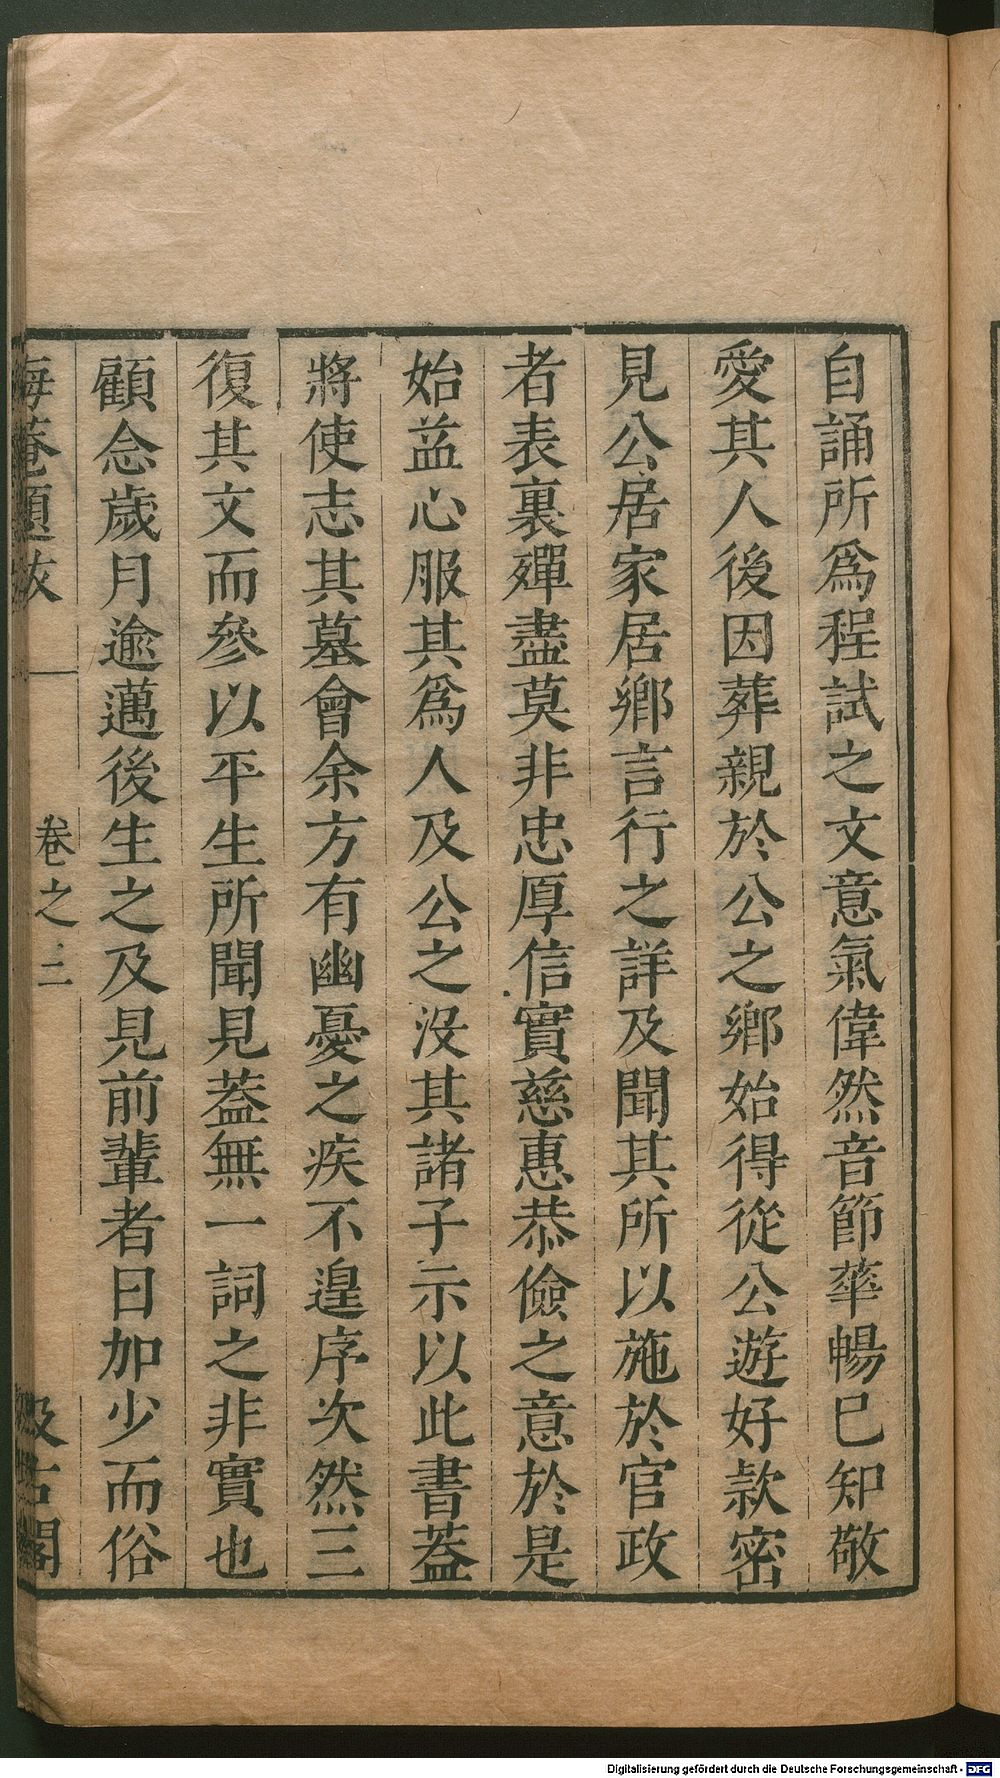 自誦所爲程試之文意氣偉然音節華暢已知敬
愛其人後因葬親於公之鄉始得從公遊好款密
見公居家居鄉言行之詳及聞其所以施於官政
者表裏殫盡莫非忠厚信實慈惠恭儉之意於是
始益心服其爲人及公之沒其諸子示以此書葢
將使志其墓會余方有幽憂之疾不遑序次然三
復其文而參以平生所聞見葢無一詞之非實也
顧念歲月逾邁後生之及見前輩者日加少而俗
晦菴題跋 卷之二 汲古閣
Digitalisierung gefördert durch die Deutsche Forschungsgemeinschaft - DFG